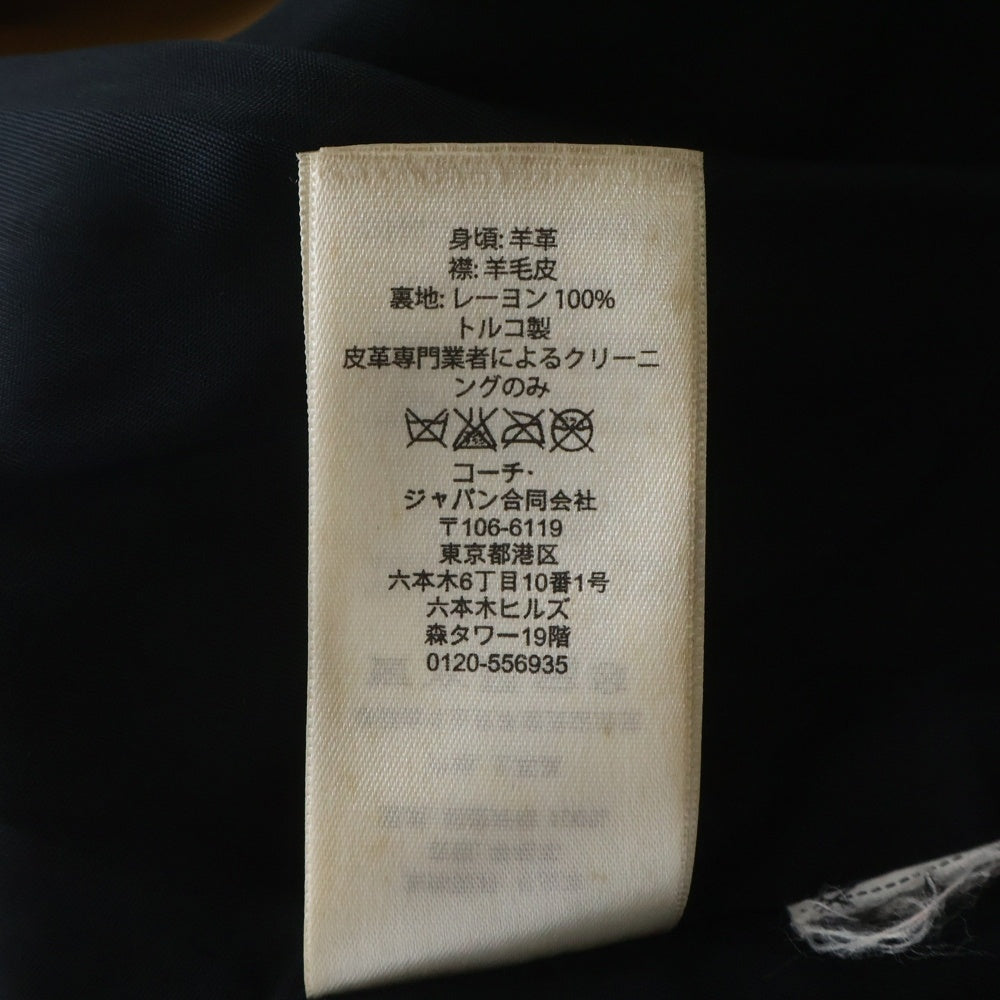 身頃: 羊革
襟: 羊毛皮
裏地: レーヨン 100%
トルコ製
皮革専門業者によるクリーニ
ングのみ
コーチ･
ジャパン合同会社
〒106-6119
東京都港区
六本木6丁目10番1号
六本木ヒルズ
森タワー19階
0120-556935